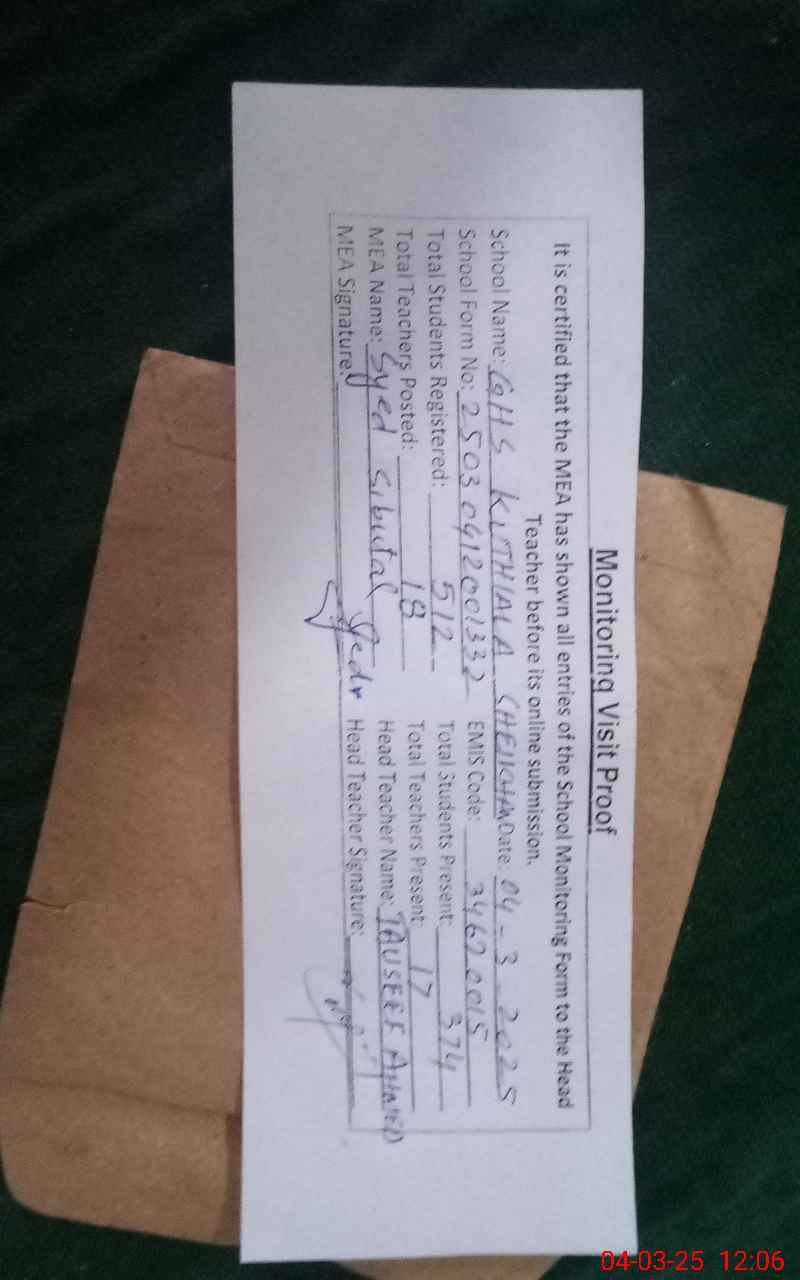 Monitoring Visit Proof
It is certified that the MEA has shown all entries of the School Monitoring Form to the Head
Teacher before its online submission.
School Name: GHS KUTHIALA SHEIKHAN Date: 04-3-2025
School Form No: 25030412001332 EMIS Code: 34620015
Total Students Registered: 512 Total Students Present: 374
Total Teachers Posted: 18 Total Teachers Present: 17
MEA Name: Syed Head Teacher Name: TAUSEEF AHMED
MEA Signature: Head Teacher Signature:
04-03-25 12:06